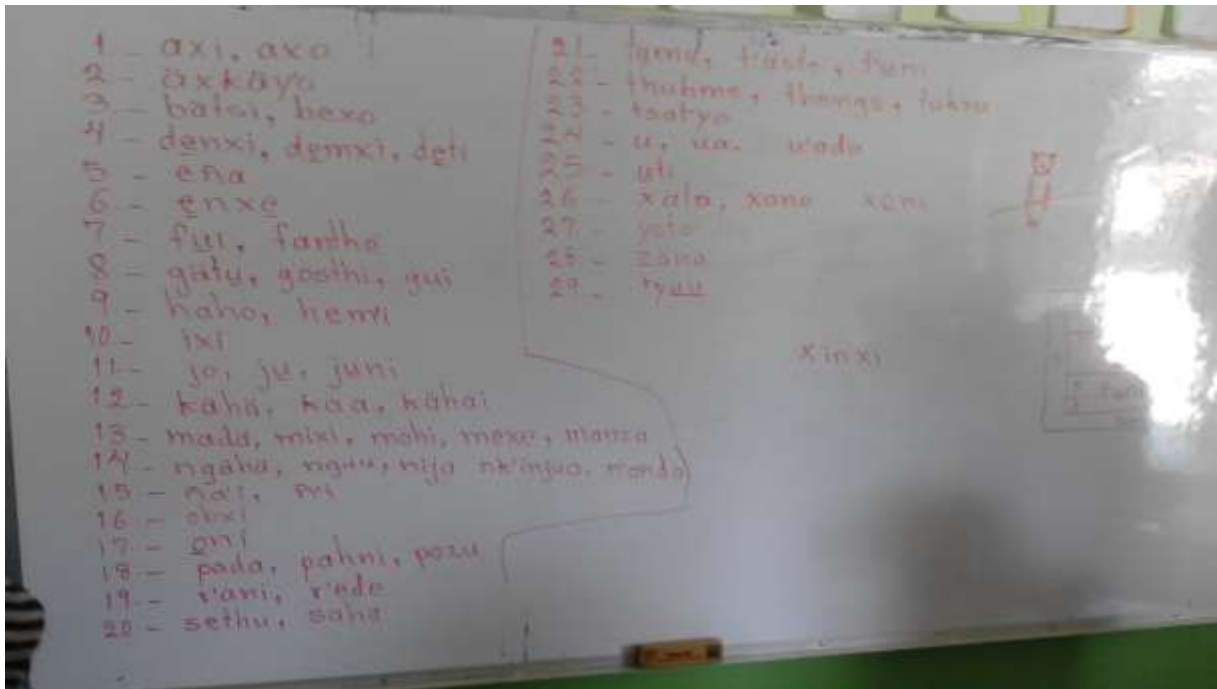 1 - axi, axo
2 - äxkäyo
3 - batsi, bexo
4 - de̲nxi, de̲mxi, de̲ti
5 - eña
6 - e̲nxe̲
7 - fu̲i, fanthe
8 - gätu̲, gosthi, gui
9 - haho, hemi
10 - ixi
11 - jo, ju̲, juni
12 - kähä, kaa, kähai
13 - mada, mixi, mohi, mexe, manza
14 - ngähä, ngunija nk'injua,
15 - na't,
16 -
17 - o̲ni
18 - pada, pahni, pozu
19 - r'ani, r'ede
20 - sethu, saha
21 -
22 - thuhme, thengo,
23 - tsatyo
24 - u, ua, u'ada
25 - uti
26 - xala, xono xeni
27 - yoto
28 - zana
29 -
xinxi